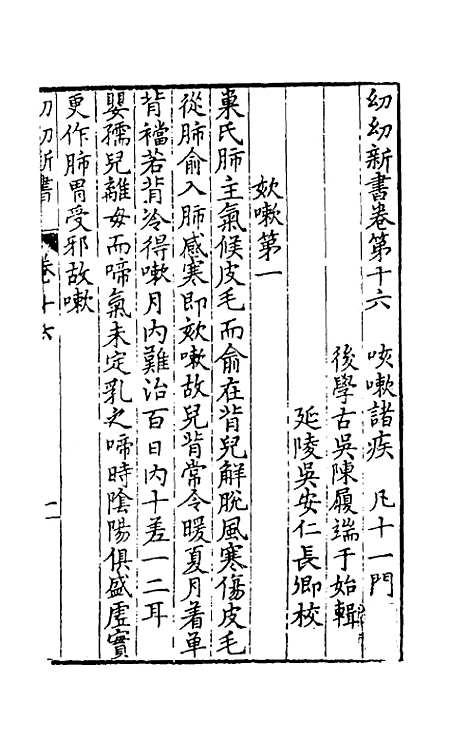 幼幼新書卷第十六　咳嗽諸疾　凡十一門
後學古吳陳履端于始輯
延陵吳安仁長卿校
欬嗽第一
巢氏肺主氣候皮毛而俞在背兒解脫風寒傷皮毛
從肺俞入肺感寒即欬嗽故兒背常令暖夏月着單
背襠若背冷得嗽月內難治百日內十差一二耳
嬰孺兒離母而啼氣未定乳之啼時陰陽俱盛虛實
更作肺胃受邪故嗽
幼幼新書　卷十六　一